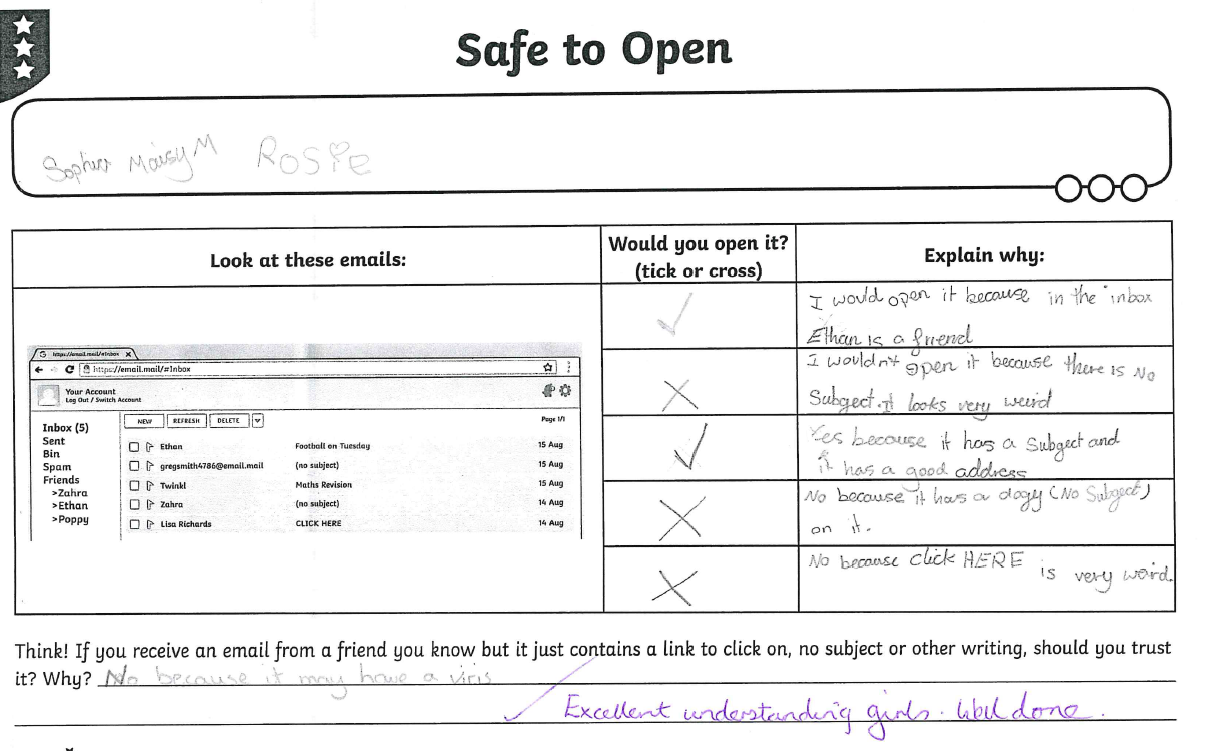 Safe to Open
Sophia Maisy M Rosie
Look at these emails:
Would you open it?
(tick or cross)
Explain why:
https://email.mail/#Inbox
https://email.mail/#Inbox
Your Account
Log Out / Switch Account
NEW REFRESH DELETE Page 1/1
Inbox (5)
Sent
Bin
Spam
Friends
>Zahra
>Ethan
>Poppy
Ethan Football on Tuesday 15 Aug
gregsmith4786@email.mail (no subject) 15 Aug
Twinkl Maths Revision 15 Aug
Zahra (no subject) 14 Aug
Lisa Richards CLICK HERE 14 Aug
I would open it because in the inbox
Ethan is a friend
I wouldn't open it because there is No
Subgect. it looks very weird
Yes because it has a Subgect and
it has a good address
No because it has a dogy (No Subgect)
on it.
No because click HERE is very weird.
Think! If you receive an email from a friend you know but it just contains a link to click on, no subject or other writing, should you trust
it? Why? No because it may have a viris
Excellent understanding girls. Well done.